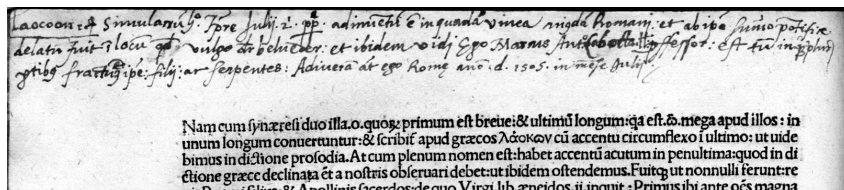 Laocoon: Simulacrum: Tpre Julij 2i pp adinuētū ē in quadā vinea Romam: et ab ipo sumo pōtifice
delatū fuit ī locū vulgo belueder: et ibidem vidj Ego Marcus Ant fessor: est tn in
ptibus fractū ipe: filij: ac serpentes: Adiueram āt ego Rome ano: d. 1505: in mēse Julij
Nam cum synæresi duo illa.o.quoꝝ primum est breue:& ultimū longum:q̄a est.ω̄.mega apud illos: in
unum longum conuertuntur:& scribit̄ apud græcos Λάοκων cū accentu circumflexo ī ultimo: ut uide
bimus in dictione prosodia. At cum plenum nomen est:habet accentū acutum in penultima:quod in di
ctione græce declinata ēt a nostris obseruari debet:ut ibidem ostendemus.Fuitq; ut nonnulli ferunt:re
filius:& Apollinis sacerdos:de quo Virgi.lib.æneidos.ii.inquit: Primus ibi ante oēs magna